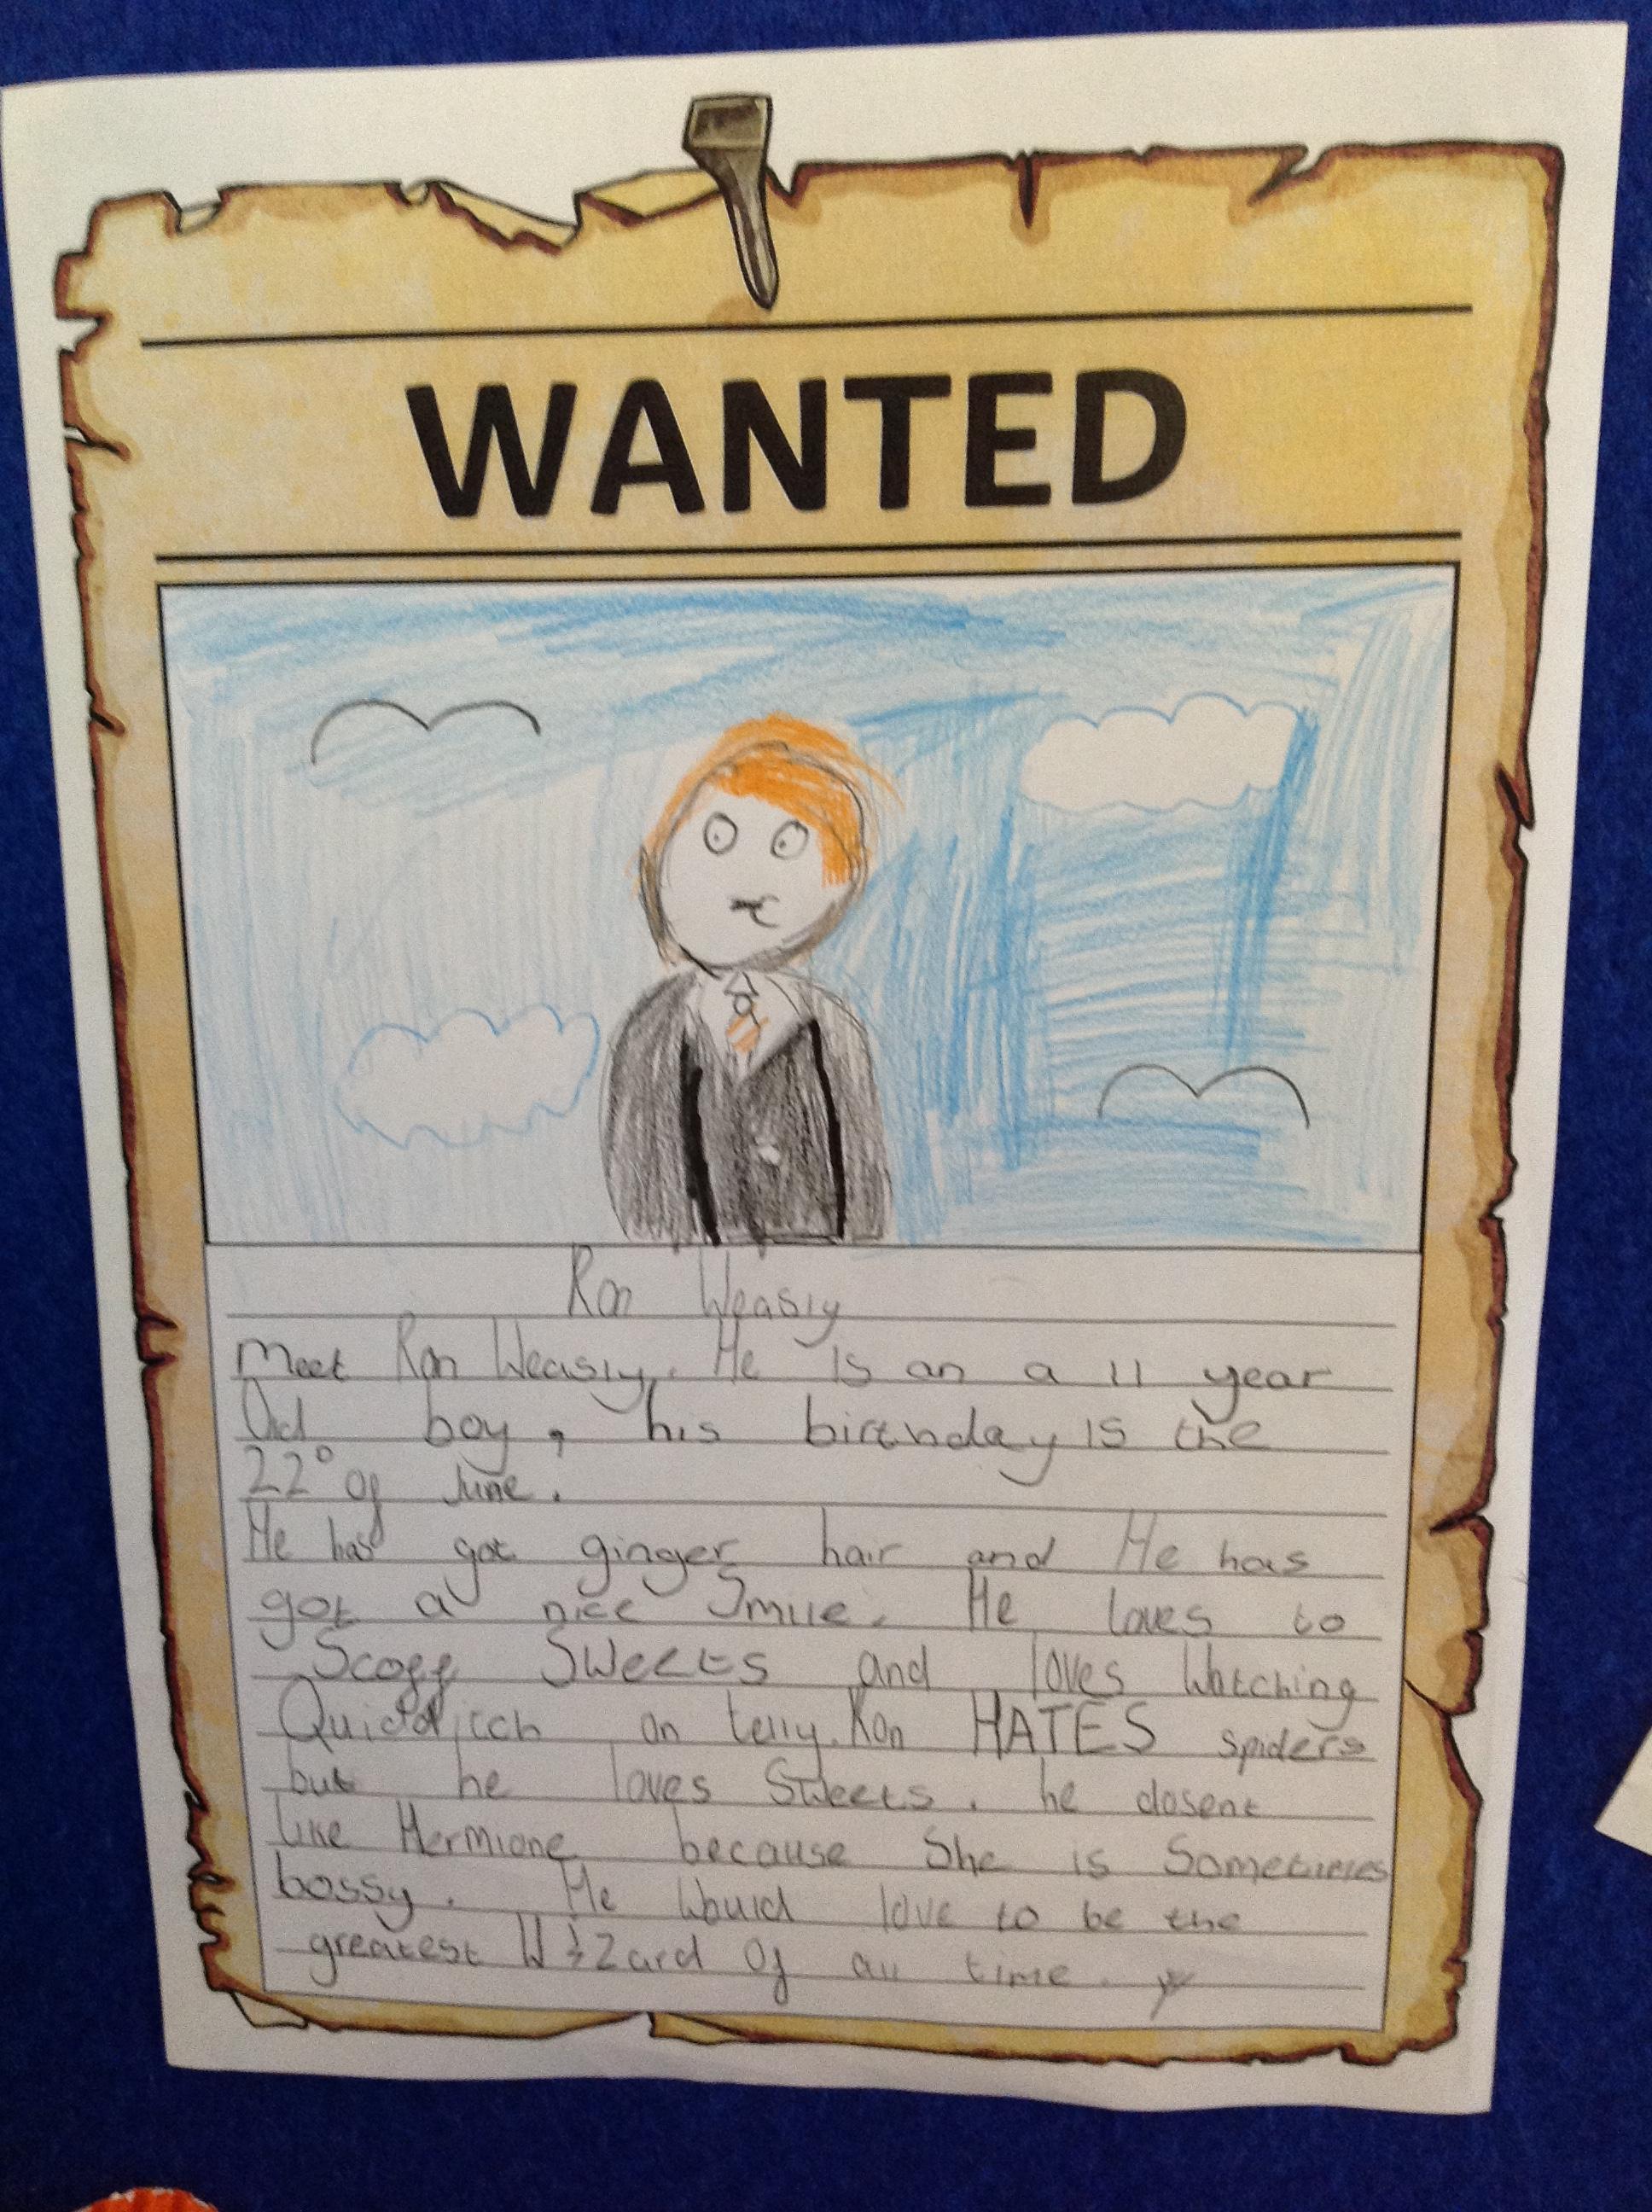 WANTED
Ron Weasly
Meet Ron Weasly. He is an a 11 year
Old boy, his birthday is the
22° of June.
He has got ginger hair and He has
got a nice Smile. He loves to
Scoff Sweets and loves Watching
Quidditch on telly. Ron HATES spiders
but he loves Sweets. he dosent
like Hermione because She is Sometimes
bossy. He Would love to be the
greatest Wizard Of all time.